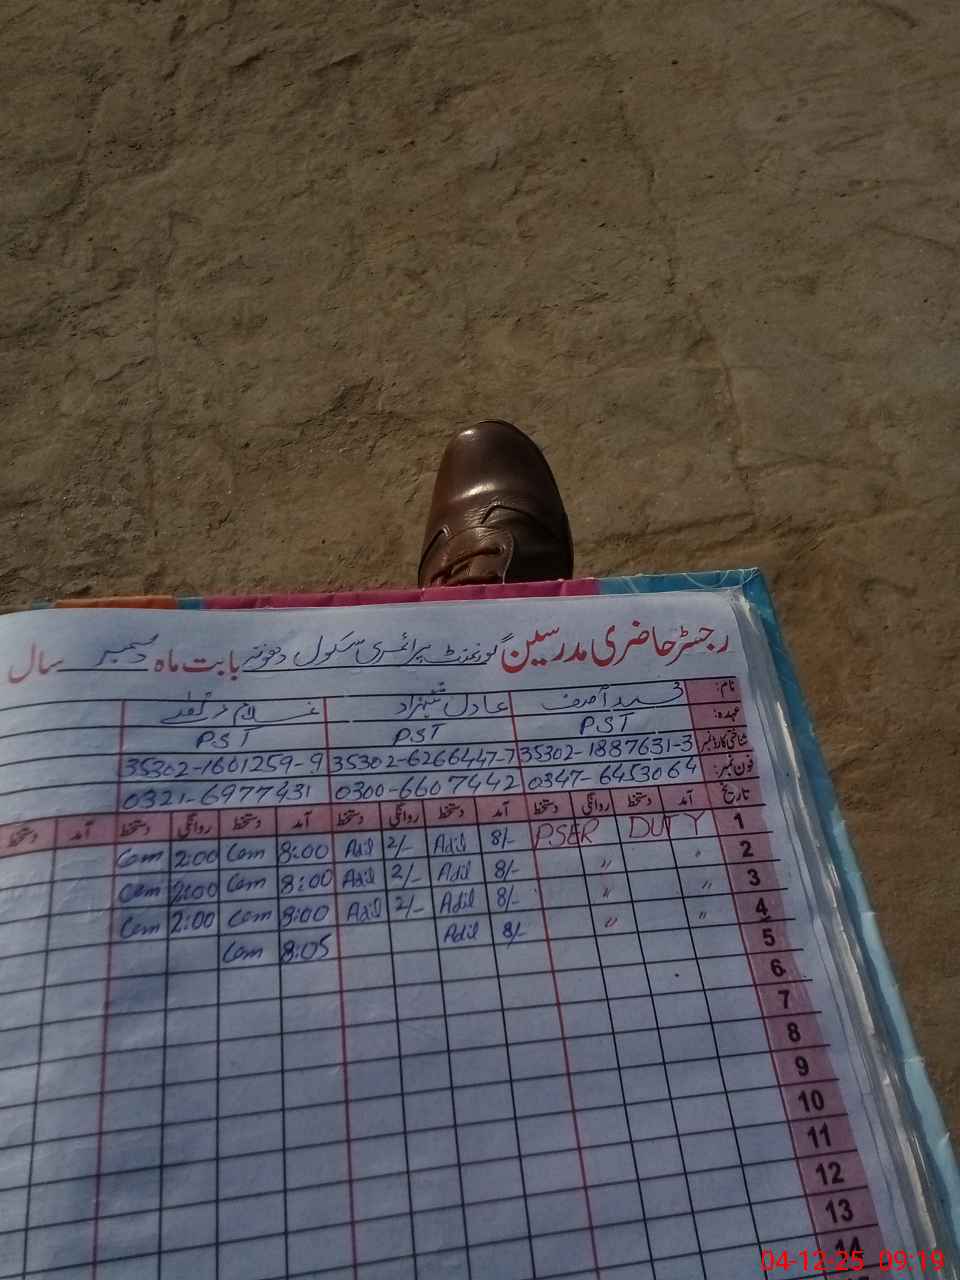 رجسٹر حاضری مدرسین گورنمنٹ پرائمری سکول بابت ماہ دسمبر سال
نام: محمد آصف عادل شہزاد غلام
عہدہ: PST PST PST
شناختی کارڈ نمبر 35302-1887631-3 35302-6266447-7 35302-1601259-9
فون نمبر: 0347-6453064 0300-6607442 0321-6977431
تاریخ آمد دستخط روانگی دستخط آمد دستخط روانگی دستخط آمد دستخط روانگی دستخط آمد دستخط
1 PSER DUTY 8/- Adil 2/- Adil 8:00 2:00
2 " " 8/- Adil 2/- Adil 8:00 2:00
3 " " 8/- Adil 2/- Adil 8:00 2:00
4 " " 8/- Adil 8:05
5
6
7
8
9
10
11
12
13
14
04-12-25 09:19